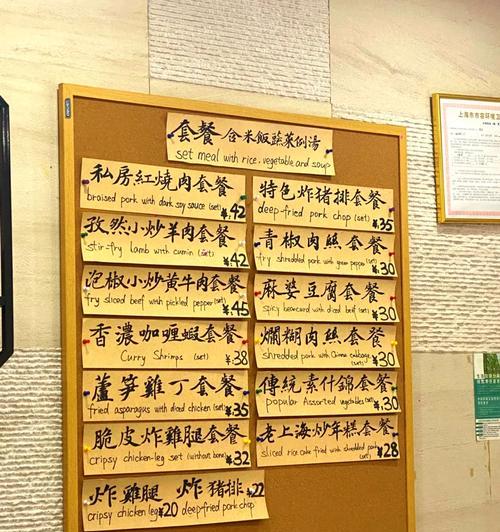 套餐 含米飯蔬菜例湯
set meal with rice, vegetable and soup
私房紅燒肉套餐
braised pork with dark soy sauce (set) ¥42
孜然小炒羊肉套餐
stir-fry lamb with cumin (set) ¥42
泡椒小炒黃牛肉套餐
fry sliced beef with pickled pepper (set) ¥45
香濃咖喱蝦套餐
Curry Shrimps (set) ¥38
蘆筍雞丁套餐
fried asparagus with diced chicken (set) ¥35
脆皮炸雞腿套餐
cripsy chicken-leg set (without bone) ¥32
炸雞腿 炸猪排 ¥22
cripsy chicken leg ¥20 deep-fried pork chop
特色炸猪排套餐
deep-fried pork chop (set) ¥35
青椒肉絲套餐
fry shredded pork with green pepper (set) ¥30
麻婆豆腐套餐
spicy beancurd with diced beef (set) ¥30
爛糊肉絲套餐
shredded pork with Chinese cabbage (set) ¥30
傳統素什錦套餐
popular Assorted vegetables (set) ¥30
老上海炒年糕套餐
sliced rice cake fried with shredded pork ¥28